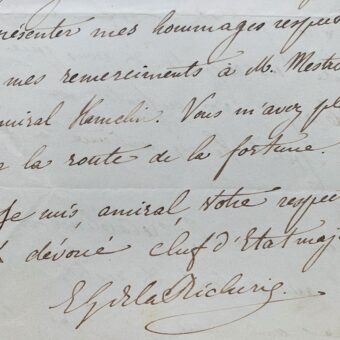 présenter mes hommages respec
mes remerciments à M. Mestr
amiral Hamelin. Vous m'avez pl
la route de la fortune.
Je suis, amiral, votre respec
dévoué chef d'Etat maj
E G de la Richerie